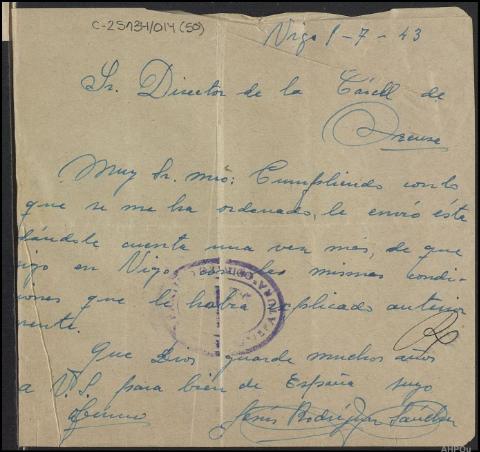 C-25134/014 (50)
Vigo 1-7-43
Sr. Director de la Cárcell de
Orense
Muy Sr. mio: Cumpliendo con lo
que se me ha ordenado, le envió éste
dándole cuenta una vez mas, de que
en Vigo las mismas condi-
ciones que le habia aplicado anterior
mente.
Que Dios guarde muchos años
a V.S. para bien de España suyo
Jesús Rodríguez Sánchez
AHPOu